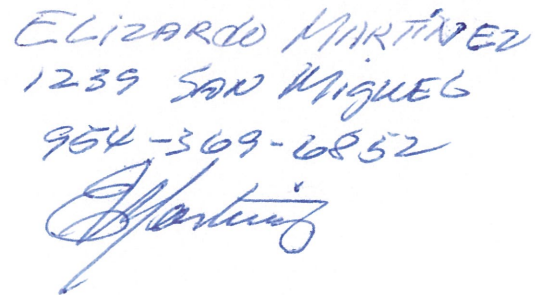 ELIZARDO MARTÍNEZ
1239 SAN MIGUEL
954-369-6852
EMartinez